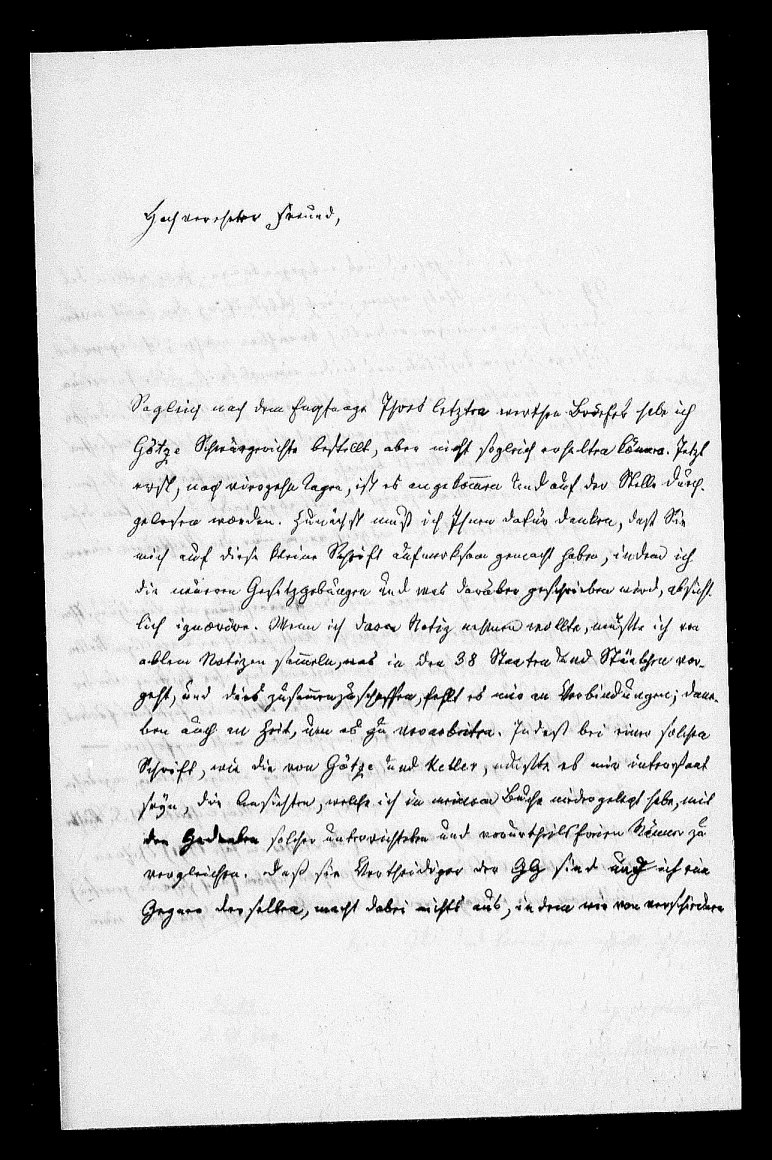 Hochverehrter Freund,
Sogleich nach dem Empfange Ihres letzten werthen Briefes habe ich
Götze Schwurgerichte bestellt, aber nicht sogleich erhalten können. Jetzt
erst, nach vierzehn Tagen, ist es angekommen und auf der Stelle durch-
gelesen worden. Zunächst muß ich Ihnen dafür danken, daß Sie
mich auf diese kleine Schrift aufmerksam gemacht haben, indem ich
die neueren Gesetzgebungen und was darüber geschrieben wird, absicht-
lich ignorire. Wenn ich davon Notiz nehmen wollte, müßte ich vor
allem Notizen sammeln, was in den 38 Staaten und Stäätchen vor-
geht, und dies zusammenzuschaffen, fehlt es mir an Verbindungen; dane-
ben auch an Zeit, um es zu verarbeiten. Indeß bei einer solchen
Schrift, wie die von Götze und Keller, mußte es mir interessant
seyn, die Ansichten, welche ich in meinem Buche niedergelegt habe, mit
den Gedanken solcher unterrichteten und vorurtheilsfreien Männer zu
vergleichen. Daß sie Vertheidiger der GG sind und ich ein
Gegner derselben, macht dabei nichts aus, indem wir von verschiedenen